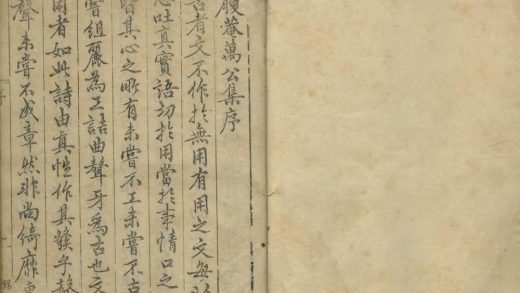 履菴萬公集序
古者文不作於無用有用之文無以
心吐真實語切於用當於事情口之
皆其心之所有未嘗不工未嘗不古
嘗組麗為工詰曲聱牙為古也文
用者如此詩由真性作其發乎
聲未嘗不成章然非尚綺靡
序